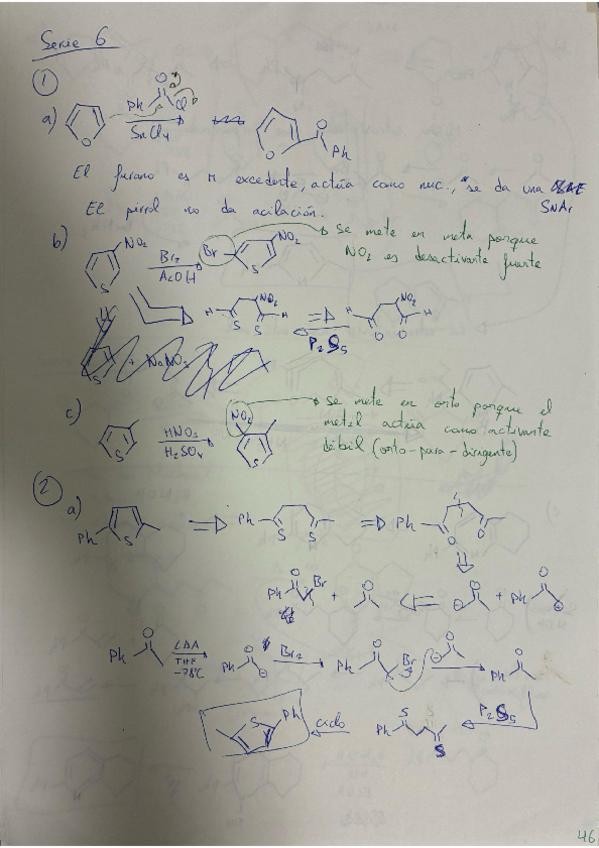 Serie 6
1
a) O Ph O Cl SnCl4 O O Ph
El furano es π excedente, actúa como nuc., se da una
SNAr
El pirrol no da acilación.
b) NO2 S Br2 AcOH Br NO2 S se mete en meta porque
NO2 es desactivante fuerte
H NO2 H S S P2S5 H NO2 H O O
S
c) S HNO3 H2SO4 NO2 S se mete en orto porque el
metil actúa como activante
débil (orto-para-dirigente)
2
a) Ph S Ph S S Ph O O
Ph O Br + O ⊖ O + Ph O ⊖
Ph O LDA THF -78ºC Ph O ⊖ Br2 Ph O Br O ⊖ Ph O
P2S5
S Ph ciclo Ph S S
46